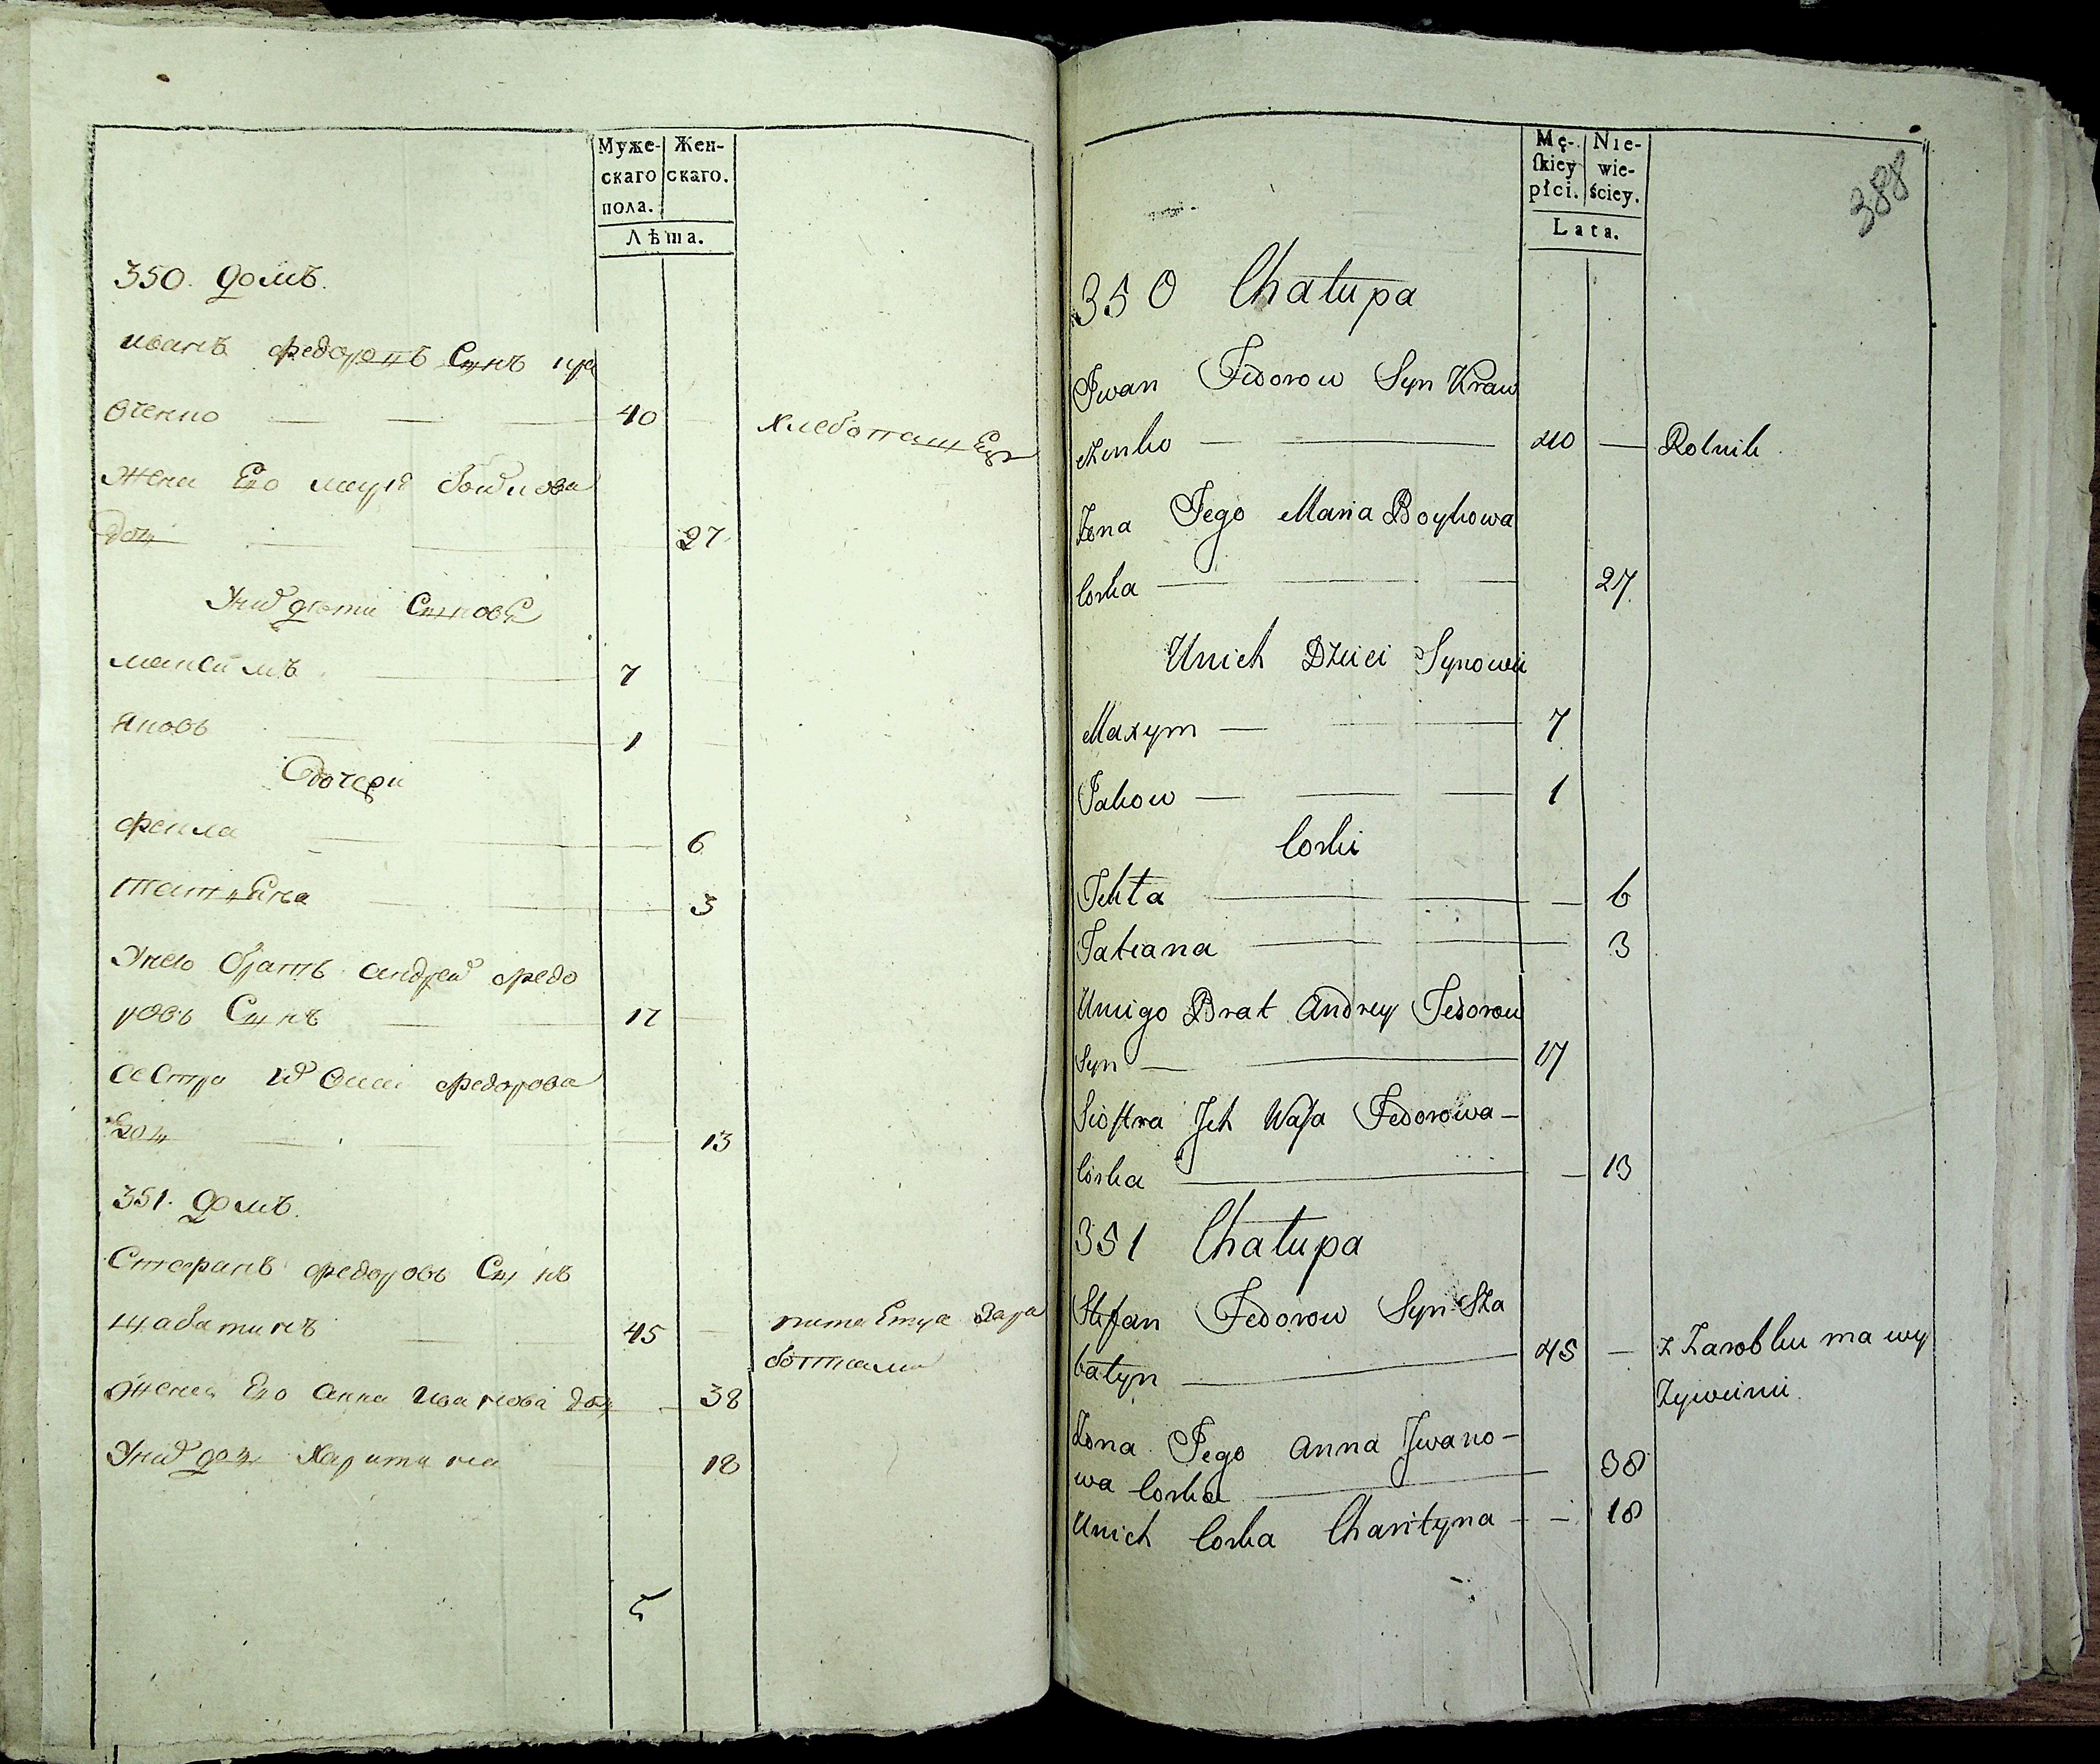 Муже-
скаго
пола.
Жен-
скаго.
Лѣта.
350. домъ.
иванъ федоровъ Сынъ кра
вченко — — — 40 хлебопашец
жена Его марія бойкова
доч — — — 27
Уних дети Сыновя
максимъ — 7
яковъ — 1
дочери
фекла — 6
татіяна — 3
Унего братъ андрей федо
ровъ Сынъ — 17
сестра их васса федорова
доч — 13
351. домъ.
Стефанъ федоровъ Сынъ
шабатинъ — 45 — питаетца зара
ботками
жена Его анна иванова доч — 38
Уних доч Харитина 18
5
Mę-
ſkiey
płci.
Nie-
wie-
ściey.
Lata.
388
350 Chałupa
Jwan Fedorow Syn Kraw
czenko — — 40 — Rolnik
Żona Jego Maria Boykowa
Corka — — — 27
Unich Dzieci Synowie
Maxym — — 7
Jakow — — — 1
Corki
Tekta — — — 6
Tatiana — — 3
Uniego Brat Andrey Fedorow
Syn — — 17
Siostra Jch Waſsa Fedorowa —
Corka — — 13
351 Chałupa
Stefan Fedorow Syn Sza
batyn — 45 — z Zarobku ma wy
Zywieni
Żona Jego Anna Jwano-
wa Corka — 38
Unich Corka Charityna - — 18